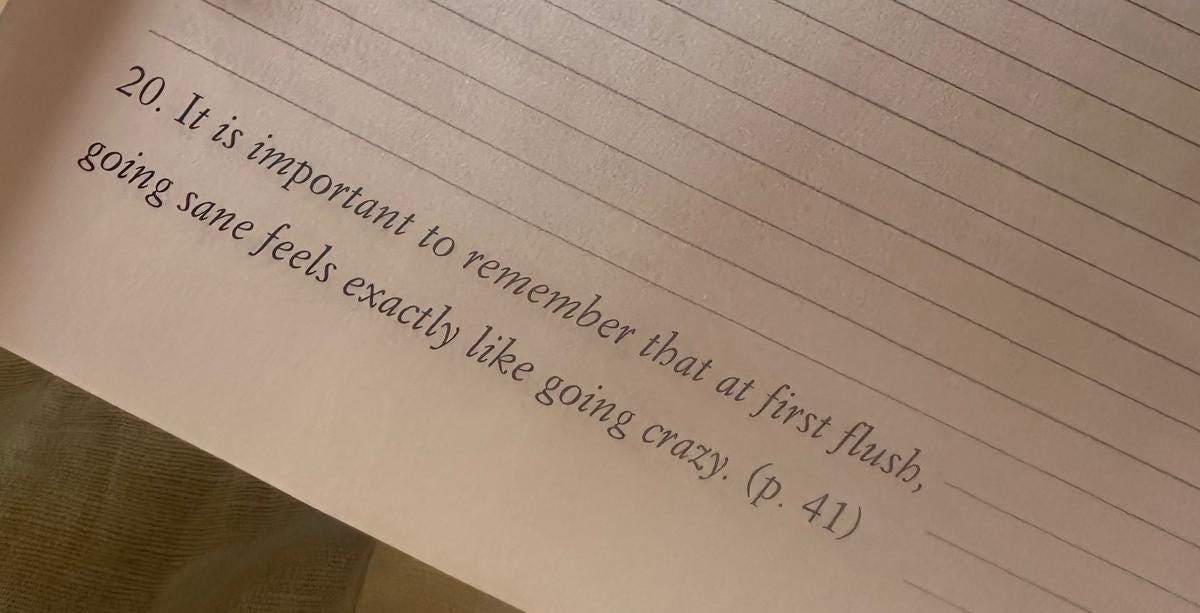 20. It is important to remember that at first flush,
going sane feels exactly like going crazy. (p. 41)